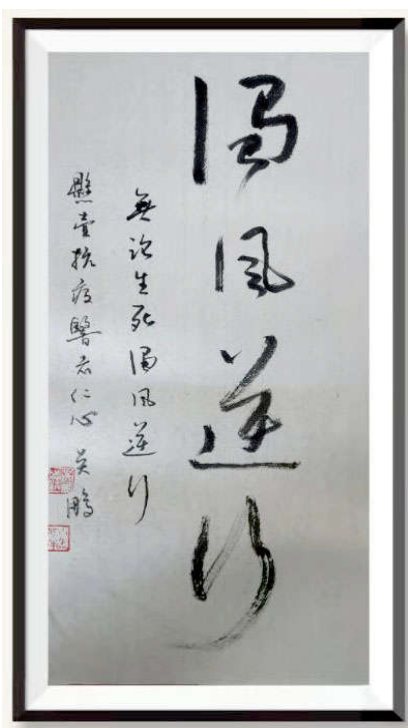 風逆行
無論生死風逆行
懸壺抗疫醫者仁心 吴鵬